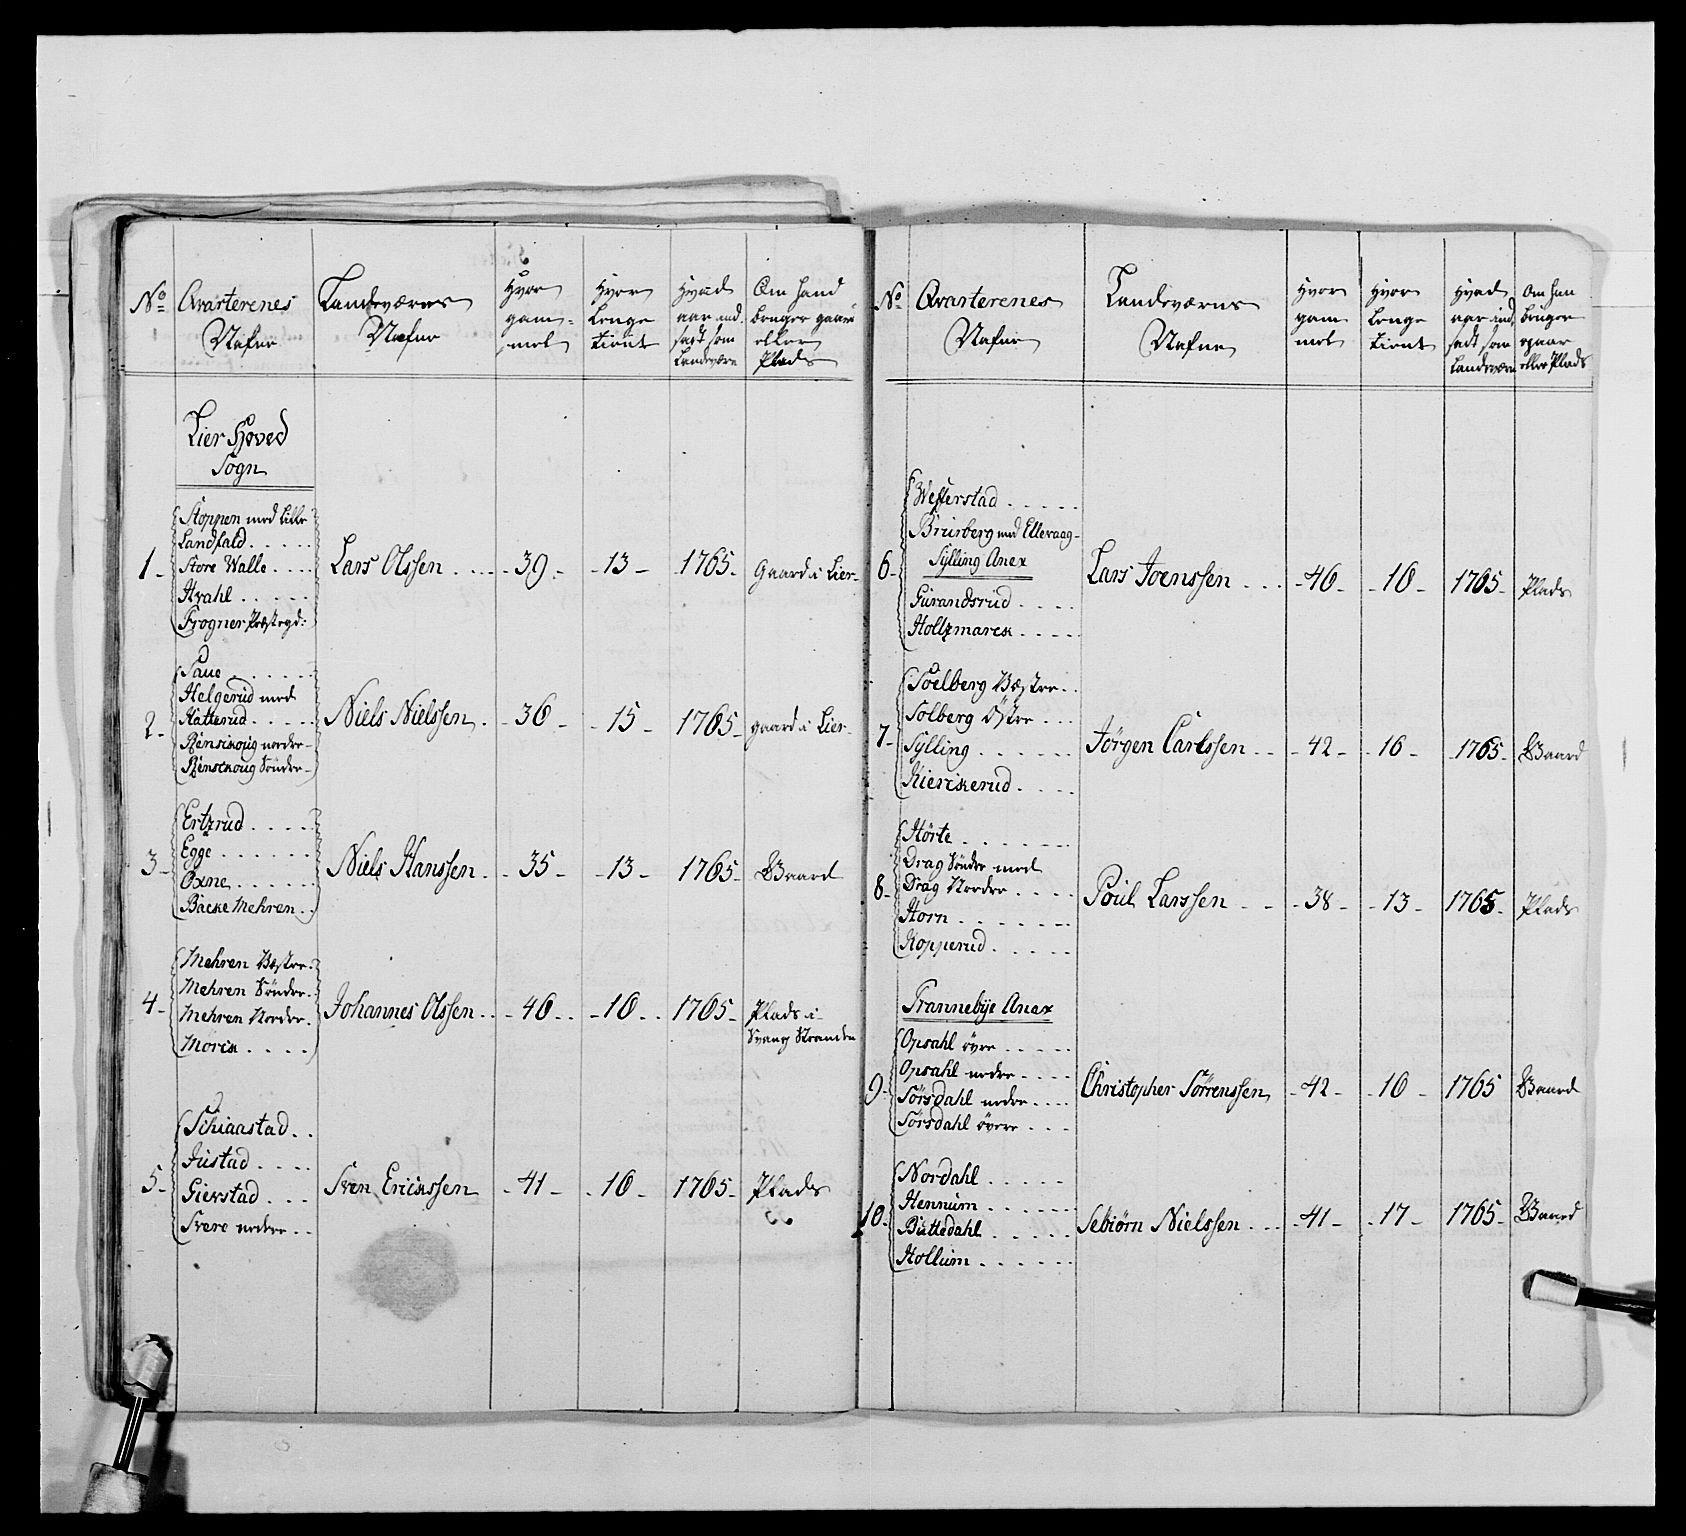 No
Qvarterenes
Nafne
Landeværns
Nafne
Hvor
gam=
mel
Hvor
Lenge
tient
Hvad
aar ind
sadt som
Landeværn
Om hand
bruger gaard
eller
Plads
Lier Hoved
Sogn
1-
Stoppen med Lille
Landfald
Store Walle
Hvahl
Frogner Præstegd:
Lars Olssen
39
13
1765
Gaard i Lier
2-
Saue
Helgerud med
Hatterud
Rensikoug nordre
Renskoug Søndre
Niels Nielssen
36
15
1765
gaard i Lier
3-
Ertzrud
Egge
Oxne
Backe Mehren
Niels Hanssen
35
13
1765
Gaard
4-
Mehren Vestre
Mehren Søndre
Mehren Nordre
Morck
Johannes Olssen
46
16
1765
Plads i
Svang Stranden
5-
Schiaastad
Justad
Gierstad
Svere nedre
Sven Erickssen
41
16
1765
Plads
No
Qvarterenes
Nafne
Landeværns
Nafne
Hvor
gam
mel
Hvor
Lenge
tient
Hvad
aar ind
sadt som
Landeværn
Om han
bruger
gaar
eller Plads
6-
Westerstad
Bruserg med Elleraag
Sylling Anex
Gurandsrud
Holtzmarck
Lars Joenssen
46
16
1765
Plads
7-
Soelberg Vestre
Solberg Østre
Sylling
Kierckerud
Jørgen Carlssen
42
16
1765
Gaard
8-
Hørte
Drag Søndre med
Drag Nordre
Horn
Kopperud
Poul Larssen
38
13
1765
Plads
Trannebye Anex
9-
Opsahl øvre
Opsahl nedre
Sørsdahl nedre
Sørsdahl øvere
Christopher Sørrenssen
42
16
1765
Gaard
10-
Nordahl
Hennum
Buttedahl
Hollum
Sebiørn Nielssen
41
17
1765
Gaard